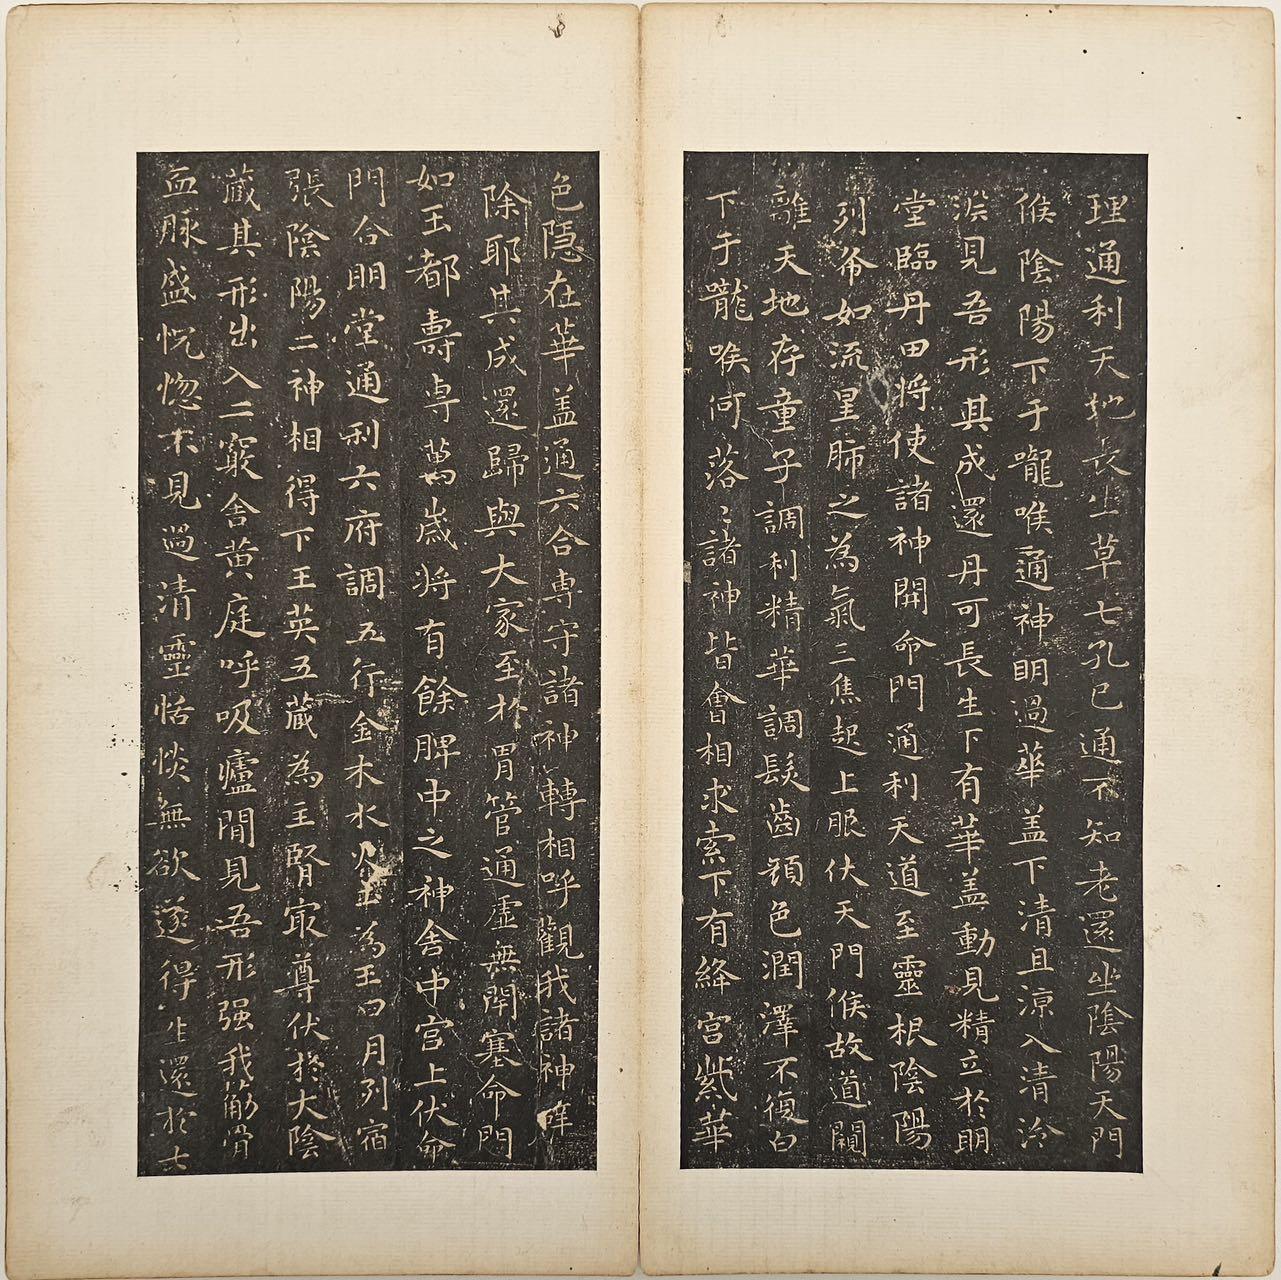 理通利天地長生草七孔已通不知老還坐陰陽天門
候陰陽下于嚨喉通神明過華蓋下清且涼入清泠
淵見吾形其成還丹可長生下有華蓋動見精立於明
堂臨丹田將使諸神開命門通利天道至靈根陰陽
列布如流星肺之為氣三焦起上服伏天門候故道闚
離天地存童子調利精華調髮齒顏色潤澤不復白
下于嚨喉何落〻諸神皆會相求索下有絳宮紫華
色隱在華蓋通六合專守諸神轉相呼觀我諸神辟
除耶其成還歸與大家至於胃管通虛無閉塞命門
如玉都壽專萬歲將有餘脾中之神舍中宮上伏命
門合明堂通利六府調五行金木水火土為王日月列宿
張陰陽二神相得下玉英五藏為主腎最尊伏於大陰
藏其形出入二竅舍黃庭呼吸廬間見吾形强我筋骨
血脉盛怳惚不見過清靈恬惔無欲遂得生還於七